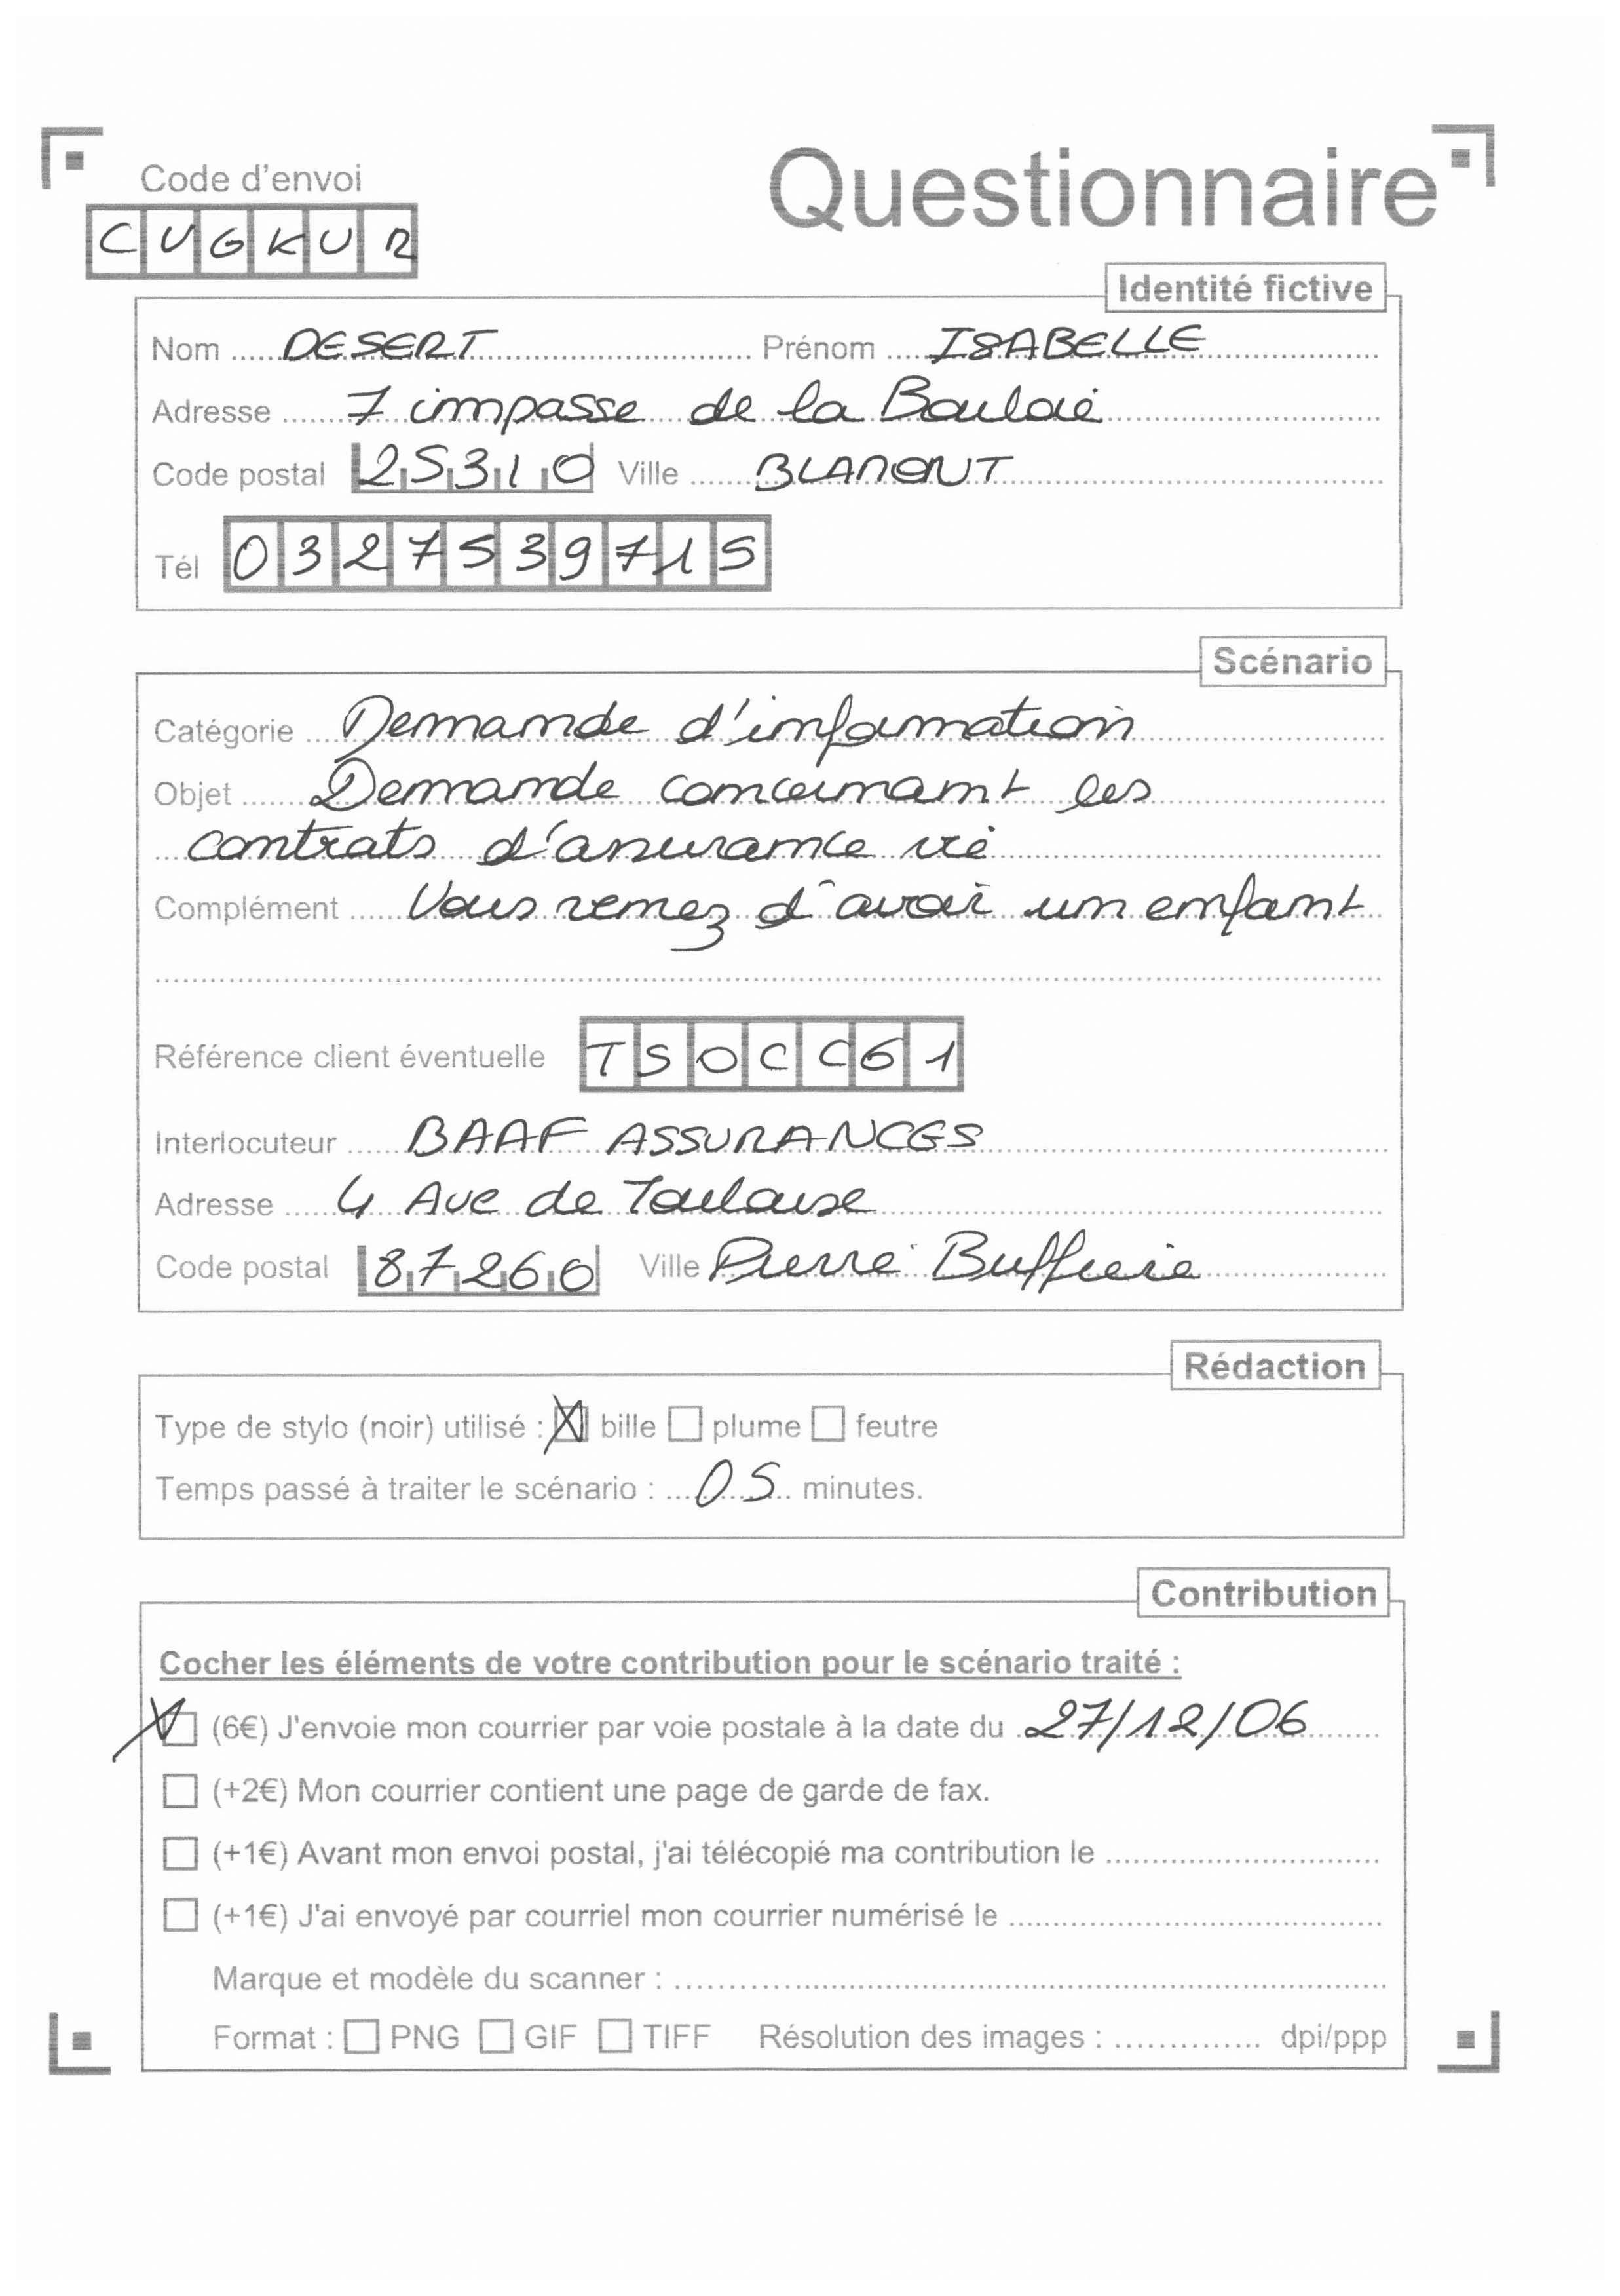 Code d'envoi
Questionnaire
CVGKUR
Identité fictive
Nom DESERT Prénom ISABELLE
Adresse 7 impasse de la Boulaie
Code postal 25310 Ville BLAMONT
Tél 0327539715
Scénario
Catégorie Demande d'information
Objet Demande concernant les
contrats d'assurance vie
Complément Vous venez d'avoir un enfant
Référence client éventuelle TSOCC61
Interlocuteur BAAF ASSURANCES
Adresse 4 Ave de Toulouse
Code postal 87260 Ville Pierre Buffiere
Rédaction
Type de stylo (noir) utilisé : bille plume feutre
Temps passé à traiter le scénario : 05 minutes.
Contribution
Cocher les éléments de votre contribution pour le scénario traité :
(6€) J'envoie mon courrier par voie postale à la date du 27/12/06
(+2€) Mon courrier contient une page de garde de fax.
(+1€) Avant mon envoi postal, j'ai télécopié ma contribution le
(+1€) J'ai envoyé par courriel mon courrier numérisé le
Marque et modèle du scanner :
Format : PNG GIF TIFF Résolution des images : dpi/ppp